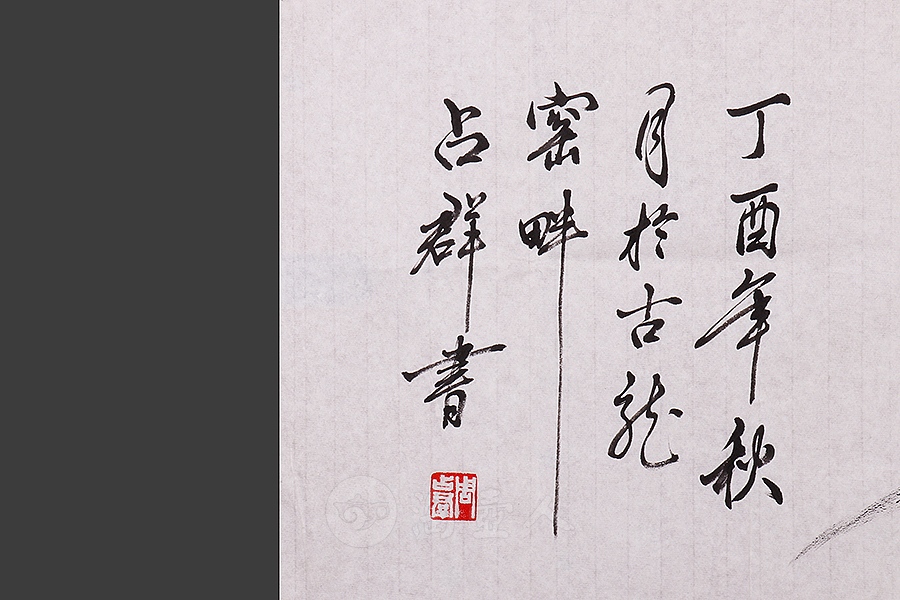 丁酉年秋
月於古龍
窯畔
占群書